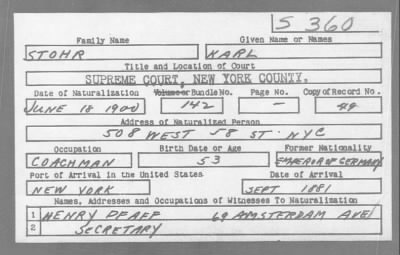 S 360
Family Name Given Name or Names
STOHR KARL
Title and Location of Court
SUPREME COURT, NEW YORK COUNTY.
Date of Naturalization Volume or Bundle No. Page No. Copy of Record No.
JUNE 18 1900 142 — 49
Address of Naturalized Person
508 WEST 58 ST. NYC
Occupation Birth Date or Age Former Nationality
COACHMAN 53 EMPEROR OF GERMANY
Port of Arrival in the United States Date of Arrival
NEW YORK SEPT 1881
Names, Addresses and Occupations of Witnesses To Naturalization
1 HENRY PFAFF 69 AMSTERDAM AVE
2 SECRETARY